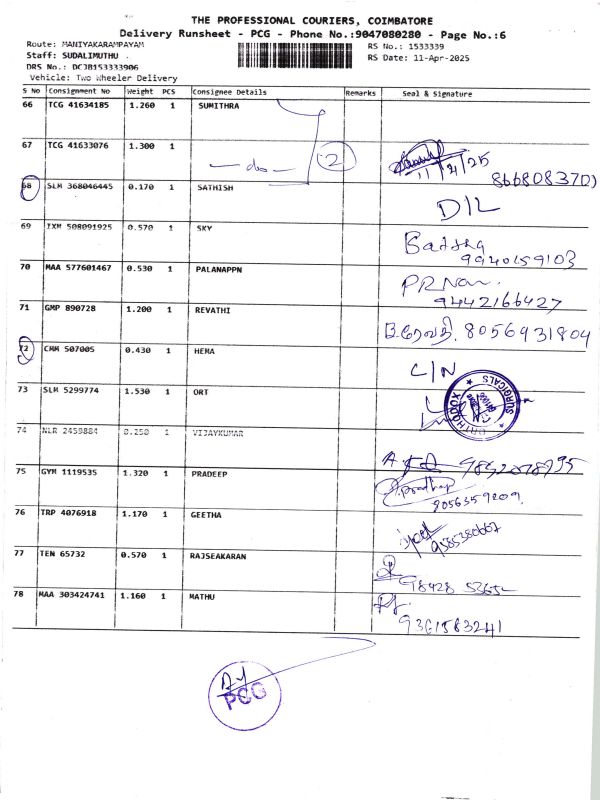 THE PROFESSIONAL COURIERS, COIMBATORE
Delivery Runsheet - PCG - Phone No.:9047080280 - Page No.:6
Route: MANIYAKARAMPAYAM RS No.: 1533339
Staff: SUDALIMUTHU . RS Date: 11-Apr-2025
DRS No.: DCJB153333906
Vehicle: Two Wheeler Delivery
S No Consignment No Weight PCS Consignee Details Remarks Seal & Signature
66 TCG 41634185 1.260 1 SUMITHRA
67 TCG 41633076 1.300 1
— do — 2
11/4/25
866808370)
68 SLM 368046445 0.170 1 SATHISH
D/L
69 IXM 508091925 0.570 1 SKY
9940159103
70 MAA 577601467 0.530 1 PALANAPPN
9442166427
71 GMP 890728 1.200 1 REVATHI
B.ரேவதி. 8056931804
72 CMM 507005 0.430 1 HEMA
C/N
73 SLM 5299774 1.530 1 ORT
SURGICALS
74 NLR 2459884 0.250 1 VIJAYKUMAR
75 GYM 1119535 1.320 1 PRADEEP
8056359209
76 TRP 4076918 1.170 1 GEETHA
9585380667
77 TEN 65732 0.570 1 RAJSEAKARAN
98428
78 MAA 303424741 1.160 1 MATHU
9361583241
PCG